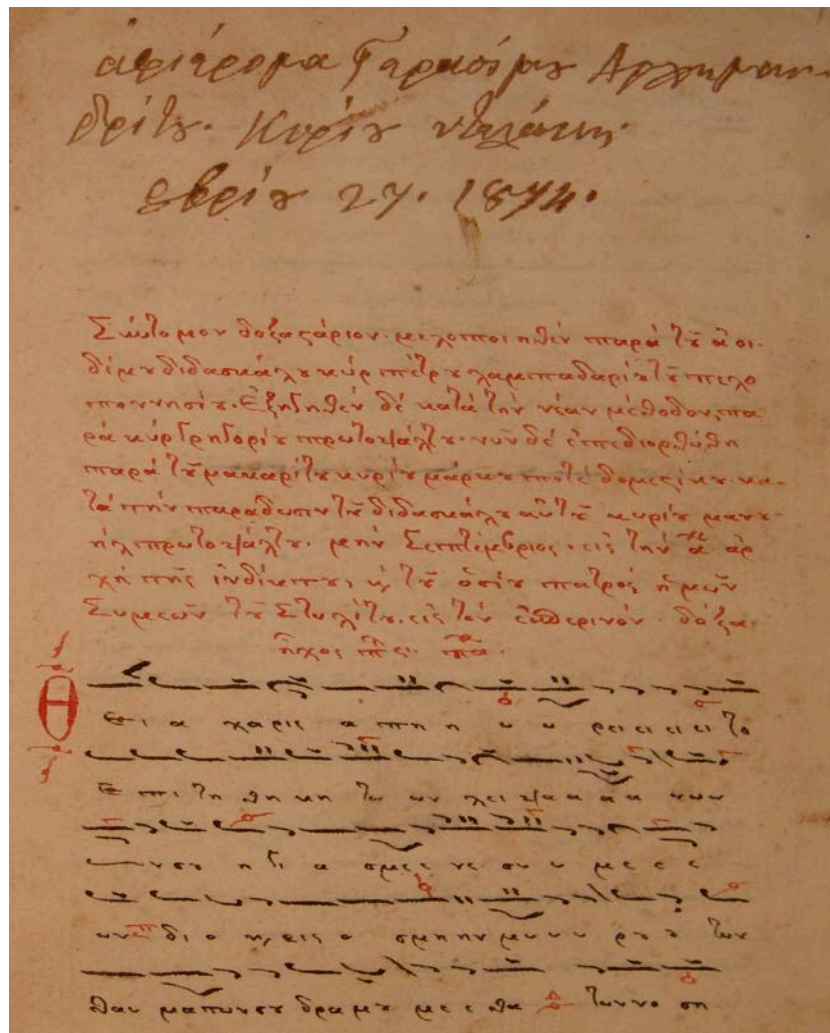 αφιέρομα Γαρασίμου Αρχημαν-
δρίτου. Κυρίου
27. 1874.
Σύντομον δοξαςάριον. μελοποιηθέν παρά τȣ̃ ἀοι-
δίμου διδασκάλου κύρ πέτρου λαμπαδαρίου τȣ̃ πελο
ποννησίου. Ἐξηγηθέν δέ κατά τήν νέαν μέθοδον, πα-
ρά κύρ Γρηγορίου πρωτοψάλτου. νῦν δέ ἐπεδιορθώθη
παρά τȣ̃ μακαρίτου κυρίου μάρκου ποτέ δομεςίκου. κα-
τά τήν παράδωσιν τȣ̃ διδασκάλου αὐτȣ̃ κυρίου μανȣ-
ήλ πρωτοψάλτου. μήν Σεπτέμβριος. εἰς τήν α ἀρ
χή τῆς ἰνδίκτου, κ τȣ̃ ὁσίου πατρός ἡμῶν
Συμεῶν τȣ̃ Στυλίτου. εἰς τόν ἑσπερινόν. δόξα.
ἦχος πα.
Θ
ει α χαρις α πη η ω ω ρει ει ει ει το
ε πι τη θη κη τω ων λει ψα α α α νων
σου η γι α σμε ε νε συ υ με ε ε
ων δι ο κ εις ο σμην μυ υ υ ρου ου των
θαυ μα των σου δρα μου με ε θα των νο ση